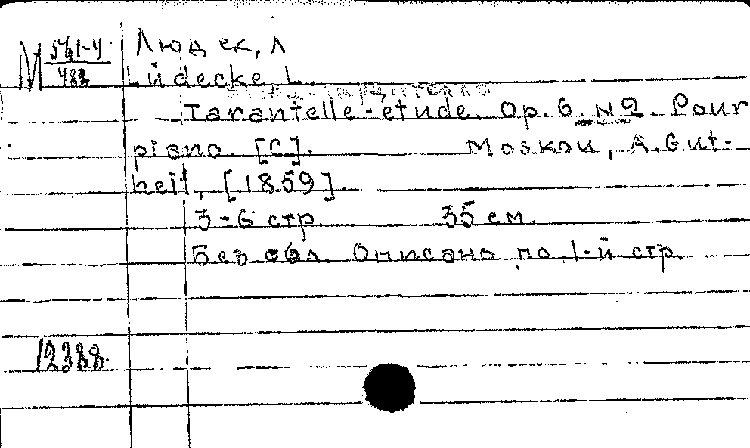 Людек, Л
М
Lüdecke, L.
Tarantelle-etude. Op. 6. N 2. Pour
piano. [C]. Moskou, A. Gut-
heil, [1859].
3-6 стр 35 см.
Без обл. Описано по 1-й стр.
12388.